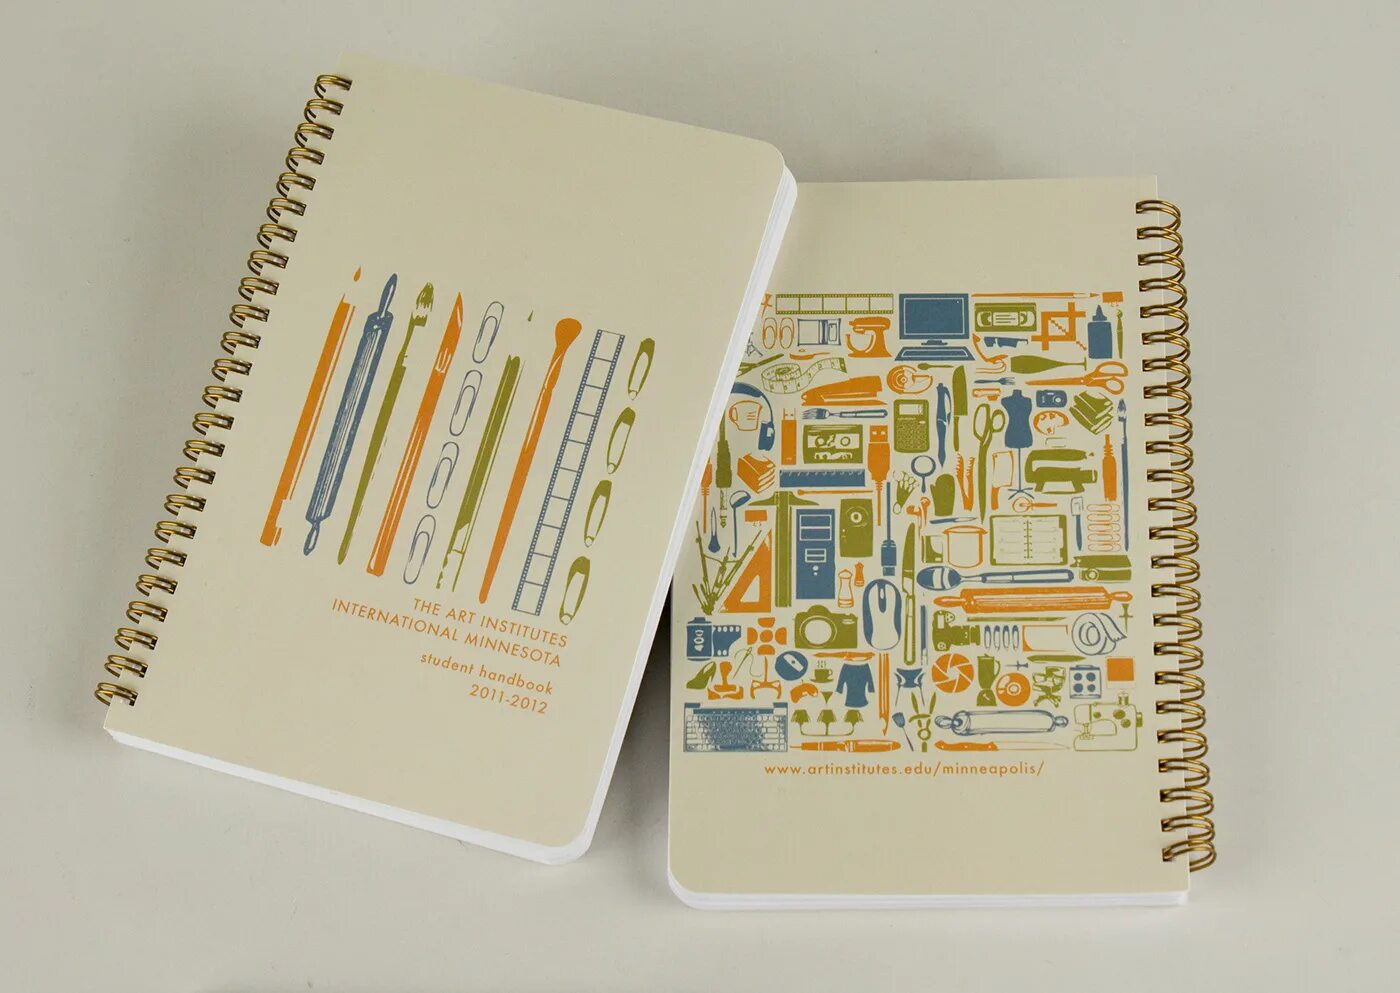 THE ART INSTITUTES
INTERNATIONAL MINNESOTA
student handbook
2011-2012
400
www.artinstitutes.edu/minneapolis/